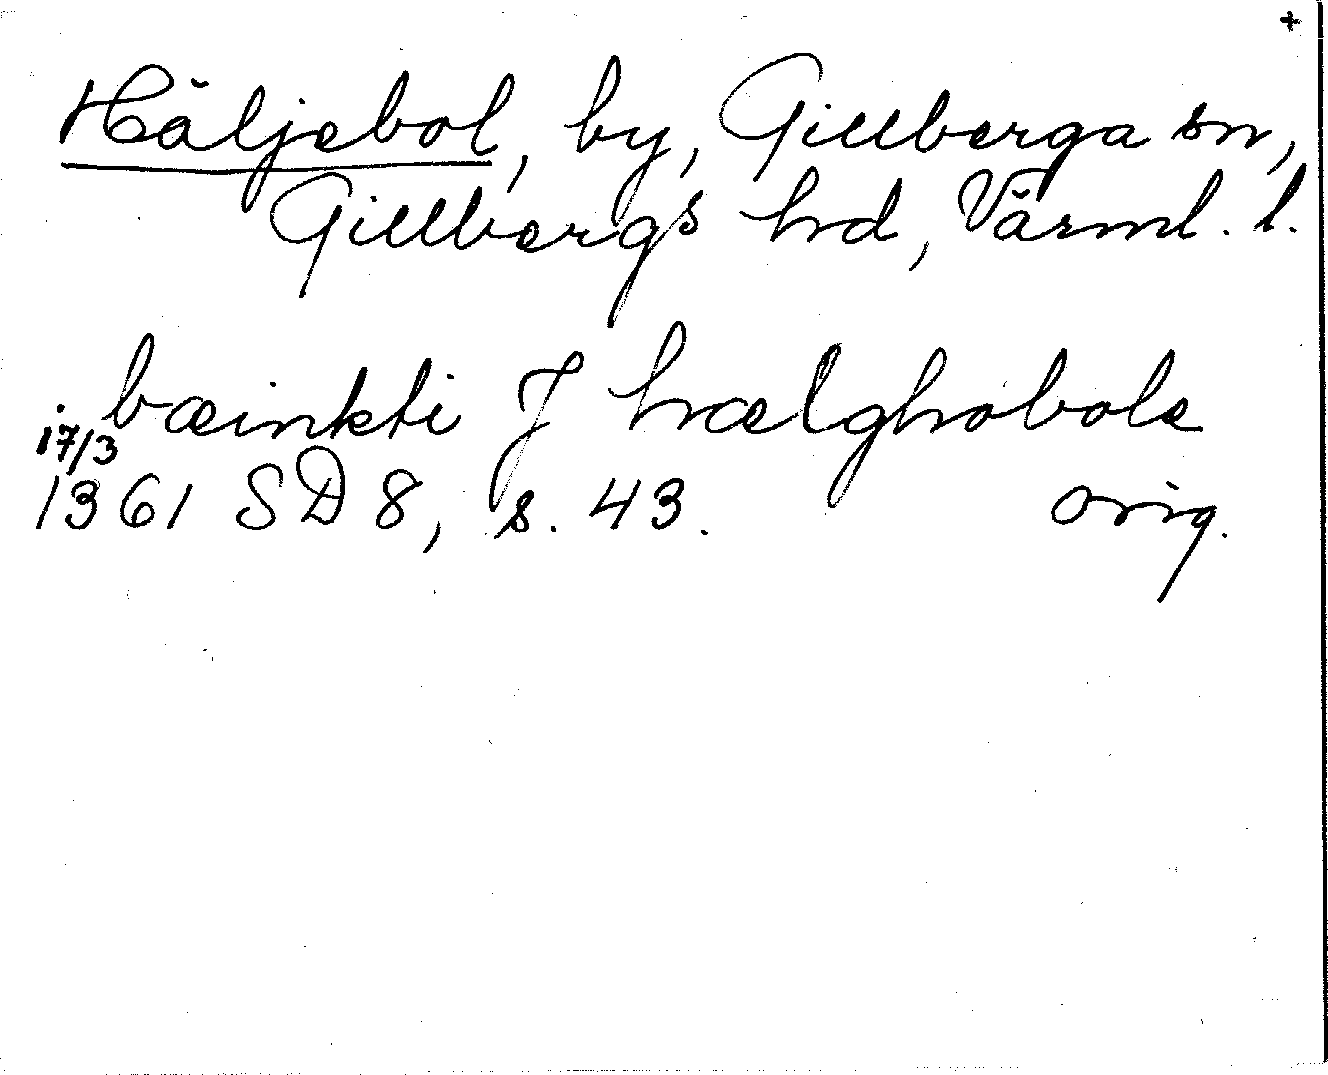 +
Häljebol, by, Gillberga sn,
Gillbergs hd, Värml. l.
bæinkti J hælghobole
17/3
1361 SD 8, s. 43. orig.